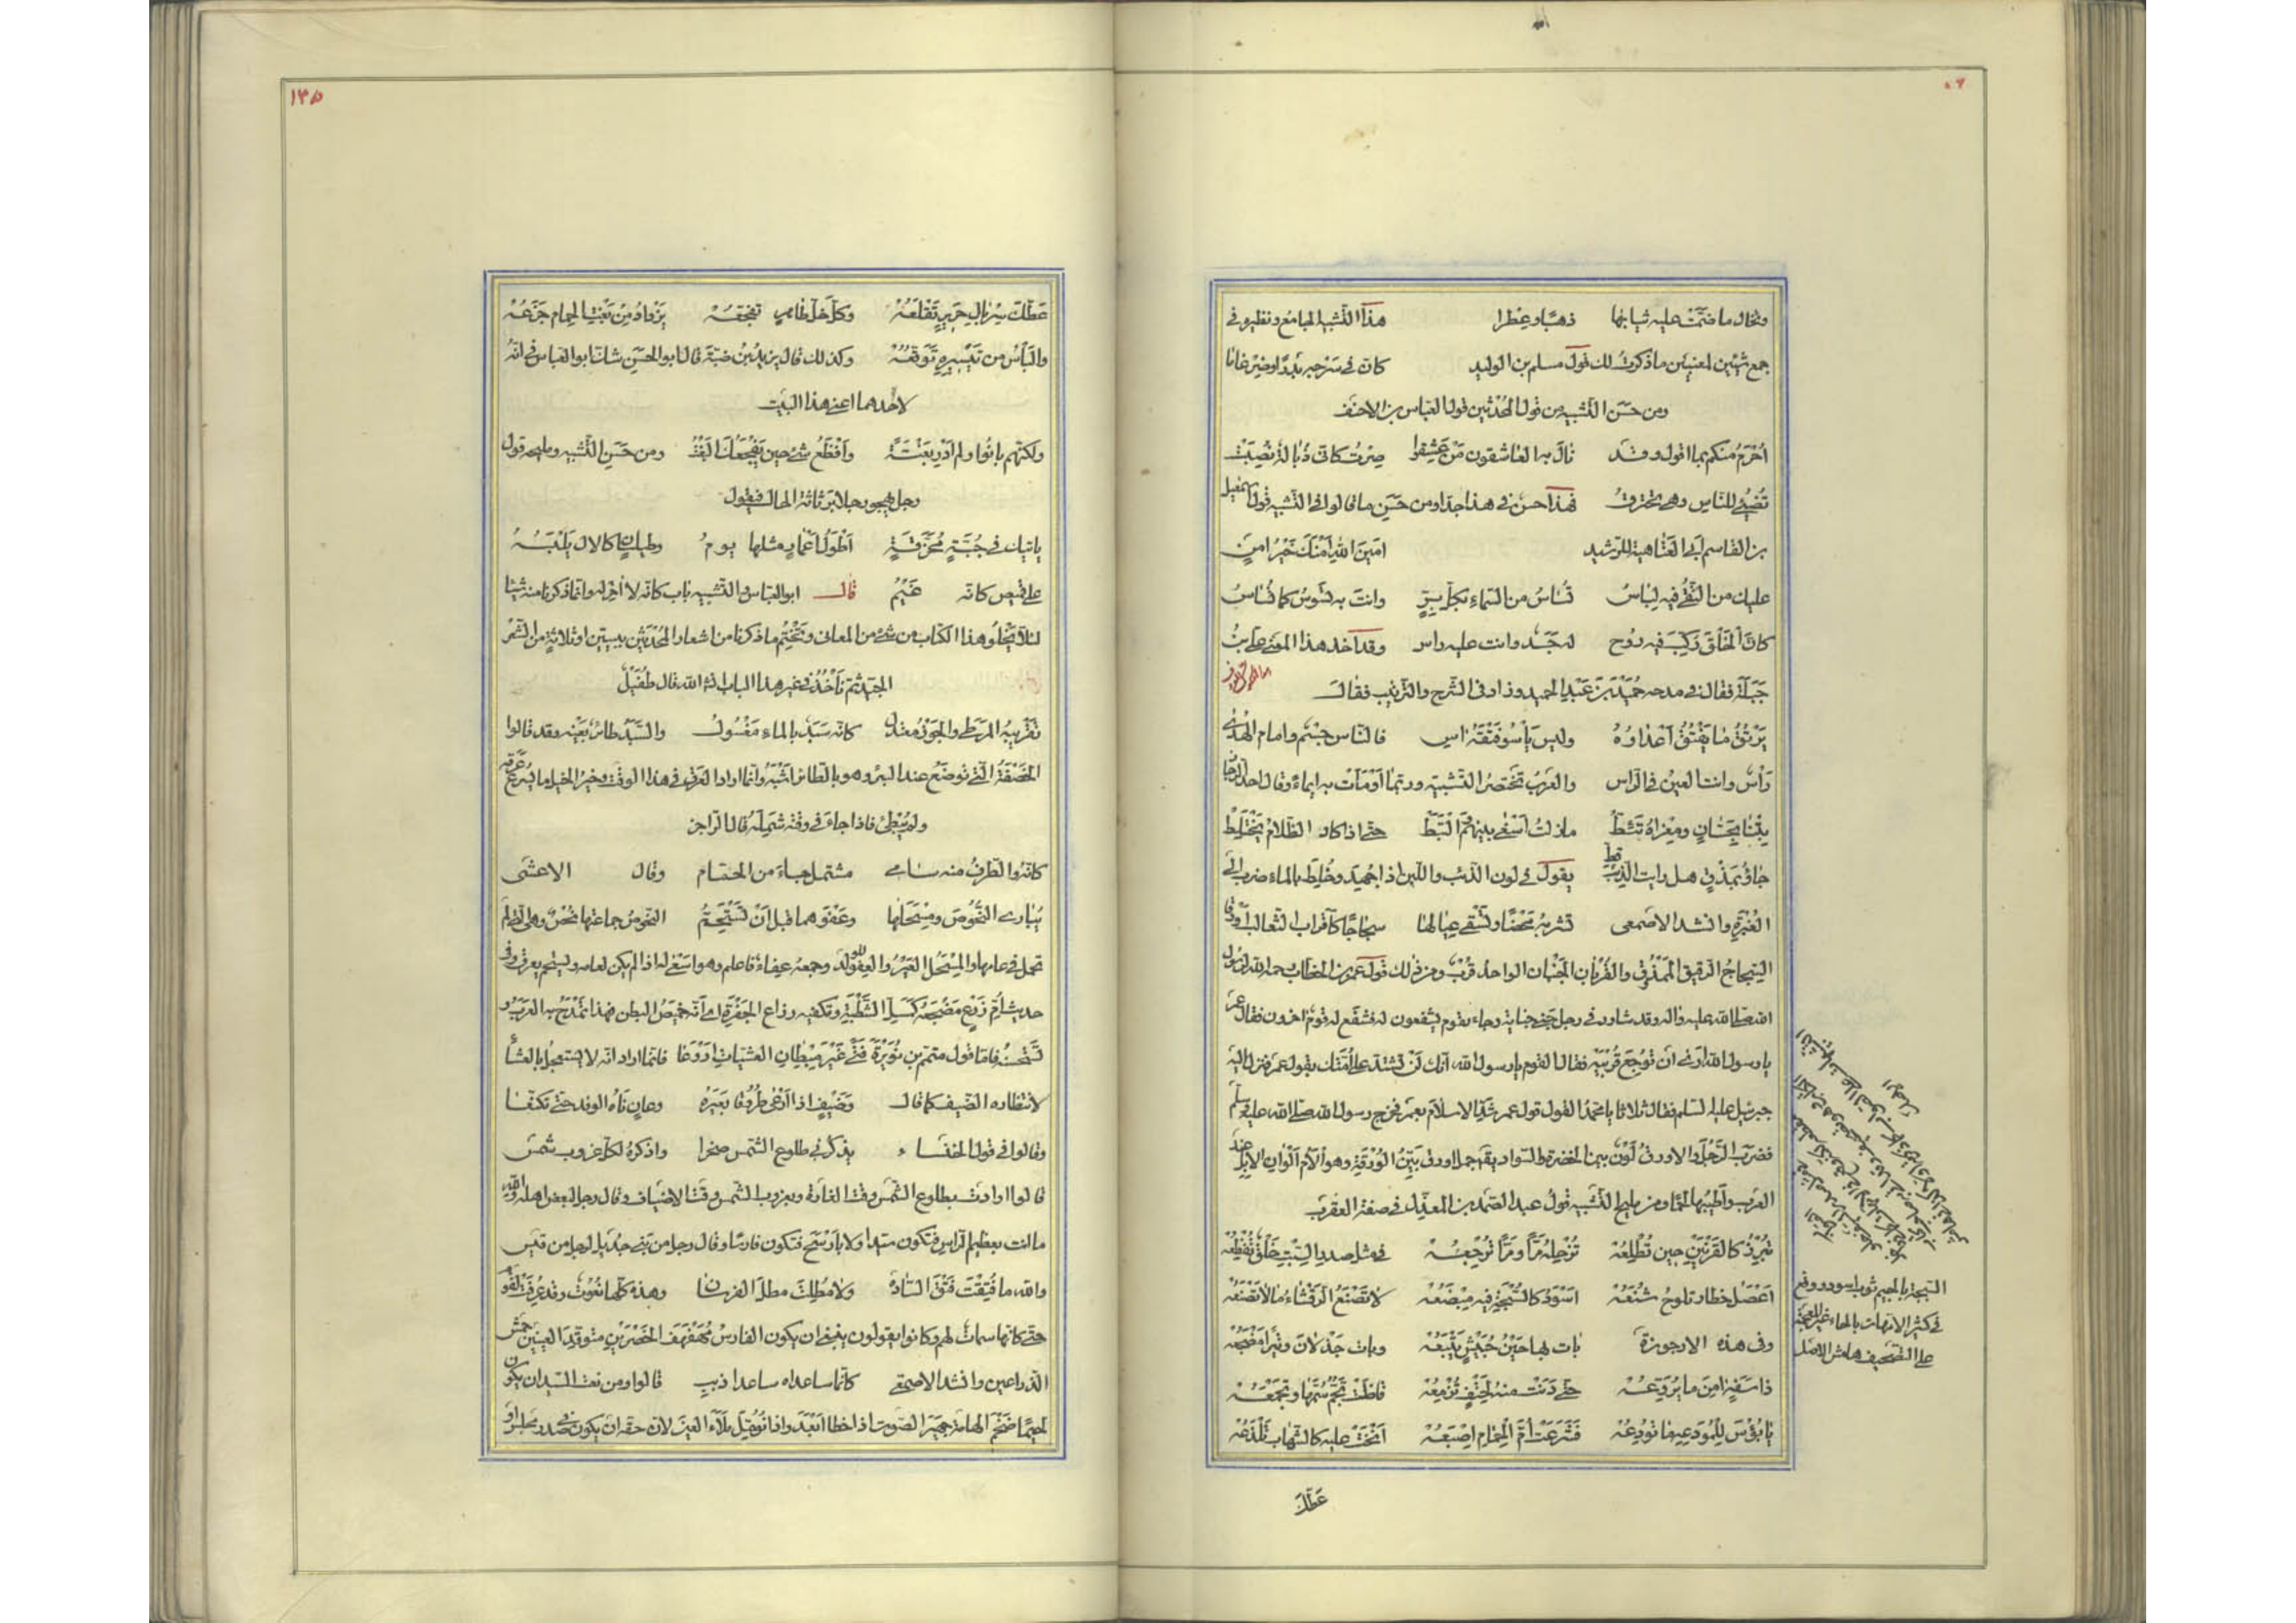 وتخال ما ضمّت عليه ثيابها ذهبًا وعطرا هذا التشبيه الجامع ونظيره في
جمع شيئين لمعنيين ما ذكرتُ لك قول مسلم بن الوليد كانّ في سرجه بدرًا وضرغاما
ومن حسَن التشبيه من قول المحدثين قول العباس بن الاحنف
اُحْرَمُ منكم بما اقول وقد نال به العاشقون من عشقوا صرتُ كانّى ذُبالةٌ نُصِبَتْ
تُضيئُ للنّاس وهى تحترقُ فهذا حسن في هذا جدا ومن حسَن ما قالوا فى التشبيه قول اسمعيل
بن القاسم ابى العتاهية للرّشيد امينَ اللهِ اَمْنُكَ خَيْرُ امنٍ
عليك من التُّقى فيه لِباسُ تُساسُ من السّماءِ بكلّ بِرٍّ وانت به تَسُوسُ كما تُساسُ
كانّ الخَلْقَ رُكِّبَ فيه رُوح له جَسَد وانت عليه راس وقد اخذ هذا المعنى علىّ بنُ
جَبَلَة فقال في مدحه حُمَيْدَ بنَ عَبْدِ الحميد وزاد فى الشرح والترتيب فقال
يَرْتُقُ ما يَفْتُقُ اَعْداؤهُ وليس يَأسُو فَتْقَهُ اسى فالنّاس جِسْم وامام الهُدىٰ
رَأس وانت العينُ فى الرّاس والعربُ تختصرُ التشبيه وربّما اَوْمَأتْ به ايماءً وقال احد الرّجّاز
بِتْنا بِحَسّانٍ ومِعْزاهُ تَئِطُّ مازلتُ اَسْعى بينهم اَلْتَبِطُ حتى اذا كاد الظّلامُ يَخْتَلِطُ
جاؤُ بِمَذْقٍ هل رايتَ الذّئبَ قط يقول فى لون الذئب واللبن اذا جُهِدَ وخُلِطَ بالماء ضرب الى
الغُبْرَةِ وانشد الاصمعى تشربه مَحْضًا وتَسْقى عِيالَها سَجاجًا كاَقْرابِ الثّعالبِ اَوْرَقا
السّجاجُ الرقيق المَمْذوق والقُرْبانِ الجَنْبانِ الواحد قُرْبٌ ومن ذلك قول عمر بن الخطاب رحمه الله لرسول
الله صلى الله عليه واله وقد شاور فى رجل جنى جناية وجاء قوم يشفعون له فشفع له قوم اخرون فقال عمر
يا رسول الله ارى ان تُوجِعَ قُرْبَيْه فقال القوم يا رسول الله انك لَنْ تشتدّ على اُمّتك بقول عمر فنزل اليه
جبرئيل عليه السلم فقال ثلاثا يا محمّدُ القول قول عمر شَدِّ الاسلامَ بعمر فخرج رسول الله صلى الله عليه وسلم
فضرب الرَّجُلَ والاورق لَوْنٌ بين الخضرة والسّواد يقال جمل اورق بَيِّنُ الوُرْقَةِ وهو اَلْاَمُ اَلْوانِ الابل عند
العرب واَطْيَبُها لحمًا ومن مليح التشبيه قولُ عبد الصّمد بن المعذّل فى صفة العقرب
تُبْرِزُ كالقَرْنَيْنِ حين تُطْلِعُهْ تُزْحِلُهُ مَرًّا ومَرًّا تُرْجِعُهْ فى مثل صدر السِّبْتِ خَلْقٌ تُفْظِعُهْ
اَعْصَلَ خطار تلوح شُنْعُهْ اَسْوَدَ كالسُّبْجَةِ فيه مِبْضَعُهْ لا تَصْنَعُ الرَّقْشاءُ ما لا تَصْنَعُهْ
وفى هذه الارجوزة بات بها حَيْنُ حُبَيْشٍ يَتْبَعُهْ وبات جَذْلانَ وثيرًا مَضْجَعُهْ
ذا سِنَةٍ اٰمِنَ ما يُروّعُهْ حتّى دَنَتْ منهُ لِحَتْفٍ تُزْمِعُهْ فاظَتْ تَجُمُّ سُمَّها وتجمَعُهْ
يا بُؤْسَ لِلْمُودَعِ ما تُودِعُهْ فشَرَعَتْ اُمُّ الحِمامِ اِصْبَعُهْ اَنْحَتْ عليه كالشّهاب تَلْذَعُهْ
عَطّكَ
السبجة بالجيم ثوب اسود ووقع
فى كثير الامهات بالحاء غير المعجمة
على التصحيف هامش الاصل
١٣٥
عَطّكَ سِرْبالِ حَرِيرٍ تَقْلَعُهْ وكلُّ خَلٍّ ظاهرٍ تفجّعُهْ يَزْدادُ مِنْ بَغْتِ الحِمامِ جَزَعُهْ
واليَأسُ من تَيْسِيرِهِ تَوَقُّعُهْ وكذلك قال يزيدُ بنُ ضبّة قال ابو الحسن شك ابو العباس فى انّه
لاحدهما اعنى هذا البيت
ولكنّهم بانُوا ولم اَدْرِ بَغْتَةً واَفْظَعُ شئٍ حين يَفْجَعُك البَغْتُ ومن حَسَنِ التشبيه ومليحه قول
رجل يهجو رجلا برثاثة الحال فيقول
ياتيك فى جُبّةٍ مُخَرّقةٍ اَطْوَلُ اَعْمارِ مثلها يومُ وطيلسانٍ كالاٰل يَلْبَسُهُ
على قميص كانه غَيْمُ قال ابو العباس والتشبيه باب كانه لا اٰخر له وانما ذكرنا منه شيئا
لئلا يَخْلُو هذا الكتاب من شئ من المعانى ونَخْتِمُ ما ذكرنا من اشعار المُحْدَثِين ببيتين او ثلاثة من الشعر
الجيّد ثم نَأخُذُ فى غير هذا الباب ان شاء الله قال طُفَيْل
تَقْرِيبُهُ المَرَطَى والجَوْزُ معتدل كانه سُبَدٌ بالماء مَغْسُولُ والسُّبَدُ طائر بعَيْنه وقد قالوا
الخَصَفَةُ التى تُوضَعُ عند البئر وهو بالطائر اَشْبَهُ وانما اراد العَرَقَ فى هذا الوقت وخيرُ الخيل ما يُسرع عَرَقُه
ولم يُبْطئ فاذا جاء فى وقته شَمِلَهُ قال الرّاجز
كانّه والطّرفُ منه سامى مشتمل جاء من الحمّام وقال الاعشى
يُبارى النَّحُوصَ ومِسْحَلَها وعَفْوَهما قبل اَنْ تَسْتَحِمّ النحوصُ جماعتها نُحُصٌ وهى التى لم
تحمل فى عامها والمِسْحَلُ العَيْرُ والعِفْوُ الولد وجمعه عِفاءٌ فاعلم وهو اسرع له اذا لم يكن لعامه ويستحم يعرق وفى
حديث اُمّ زَرْع مَضْجَعُهُ كَمَسَلِّ الشَّطْبَةِ وتكفيه ذراع الجَفْرَةِ اى انّه خَمِيصُ البطن فهذا تمدح به العربُ و
تستحسنُه فامّا قول متمّم بن نُوَيْرَة فَتًى غَيْرَ مِبْطانِ العشيّاتِ اَرْوَعا فانما اراد انه لا يستعجل بالعشا
لانتظاره الضيف كما قال وضَيْفٍ اذا اَرْغى طروقا بَعِيرَهُ وعانٍ ثاهُ الوفد حتى تكنّعا
وقالوا فى قول الخنساء يذكّرنى طلوعُ الشّمس صخرا واذكرهُ لكلّ غروب شمس
قالوا ارادتْ بطلوع الشّمس وقت الغارة وبغروب الشمس وقت الاضياف وقال رجل لبعض اهله والله
ما انت بعظيم الرّاس فتكون سيّدا ولا بارْسَحَ فتكون فارسًا وقال رجل من بنى حِمْيَر لرجل من قيس
والله ما فَتَقْتَ فَتْقَ السّادة ولا مُطِلْتَ مطلَ الفرسان وهذه كلّها نُعُوتٌ وقد عُرِفَتْ لقومٍ
حتى كانّها سمات لهم وكانوا يقولون ينبغى ان يكون الفارسُ مُهَفْهَفَ الخَصْرَيْنِ متوقّدَ العينين حَمْشَ
الذراعين وانشد الاصمعى كانّما ساعداه ساعدا ذيب قالوا ومن نعت السيّد ان يكون
لحيمًا ضَخْمَ الهامة جَهِيرَ الصّوت اذا خطا اَبْعَدَ واذا تُؤُمِّلَ ملأ العين لانّ حقّه ان يكون فى صدر مجلس او